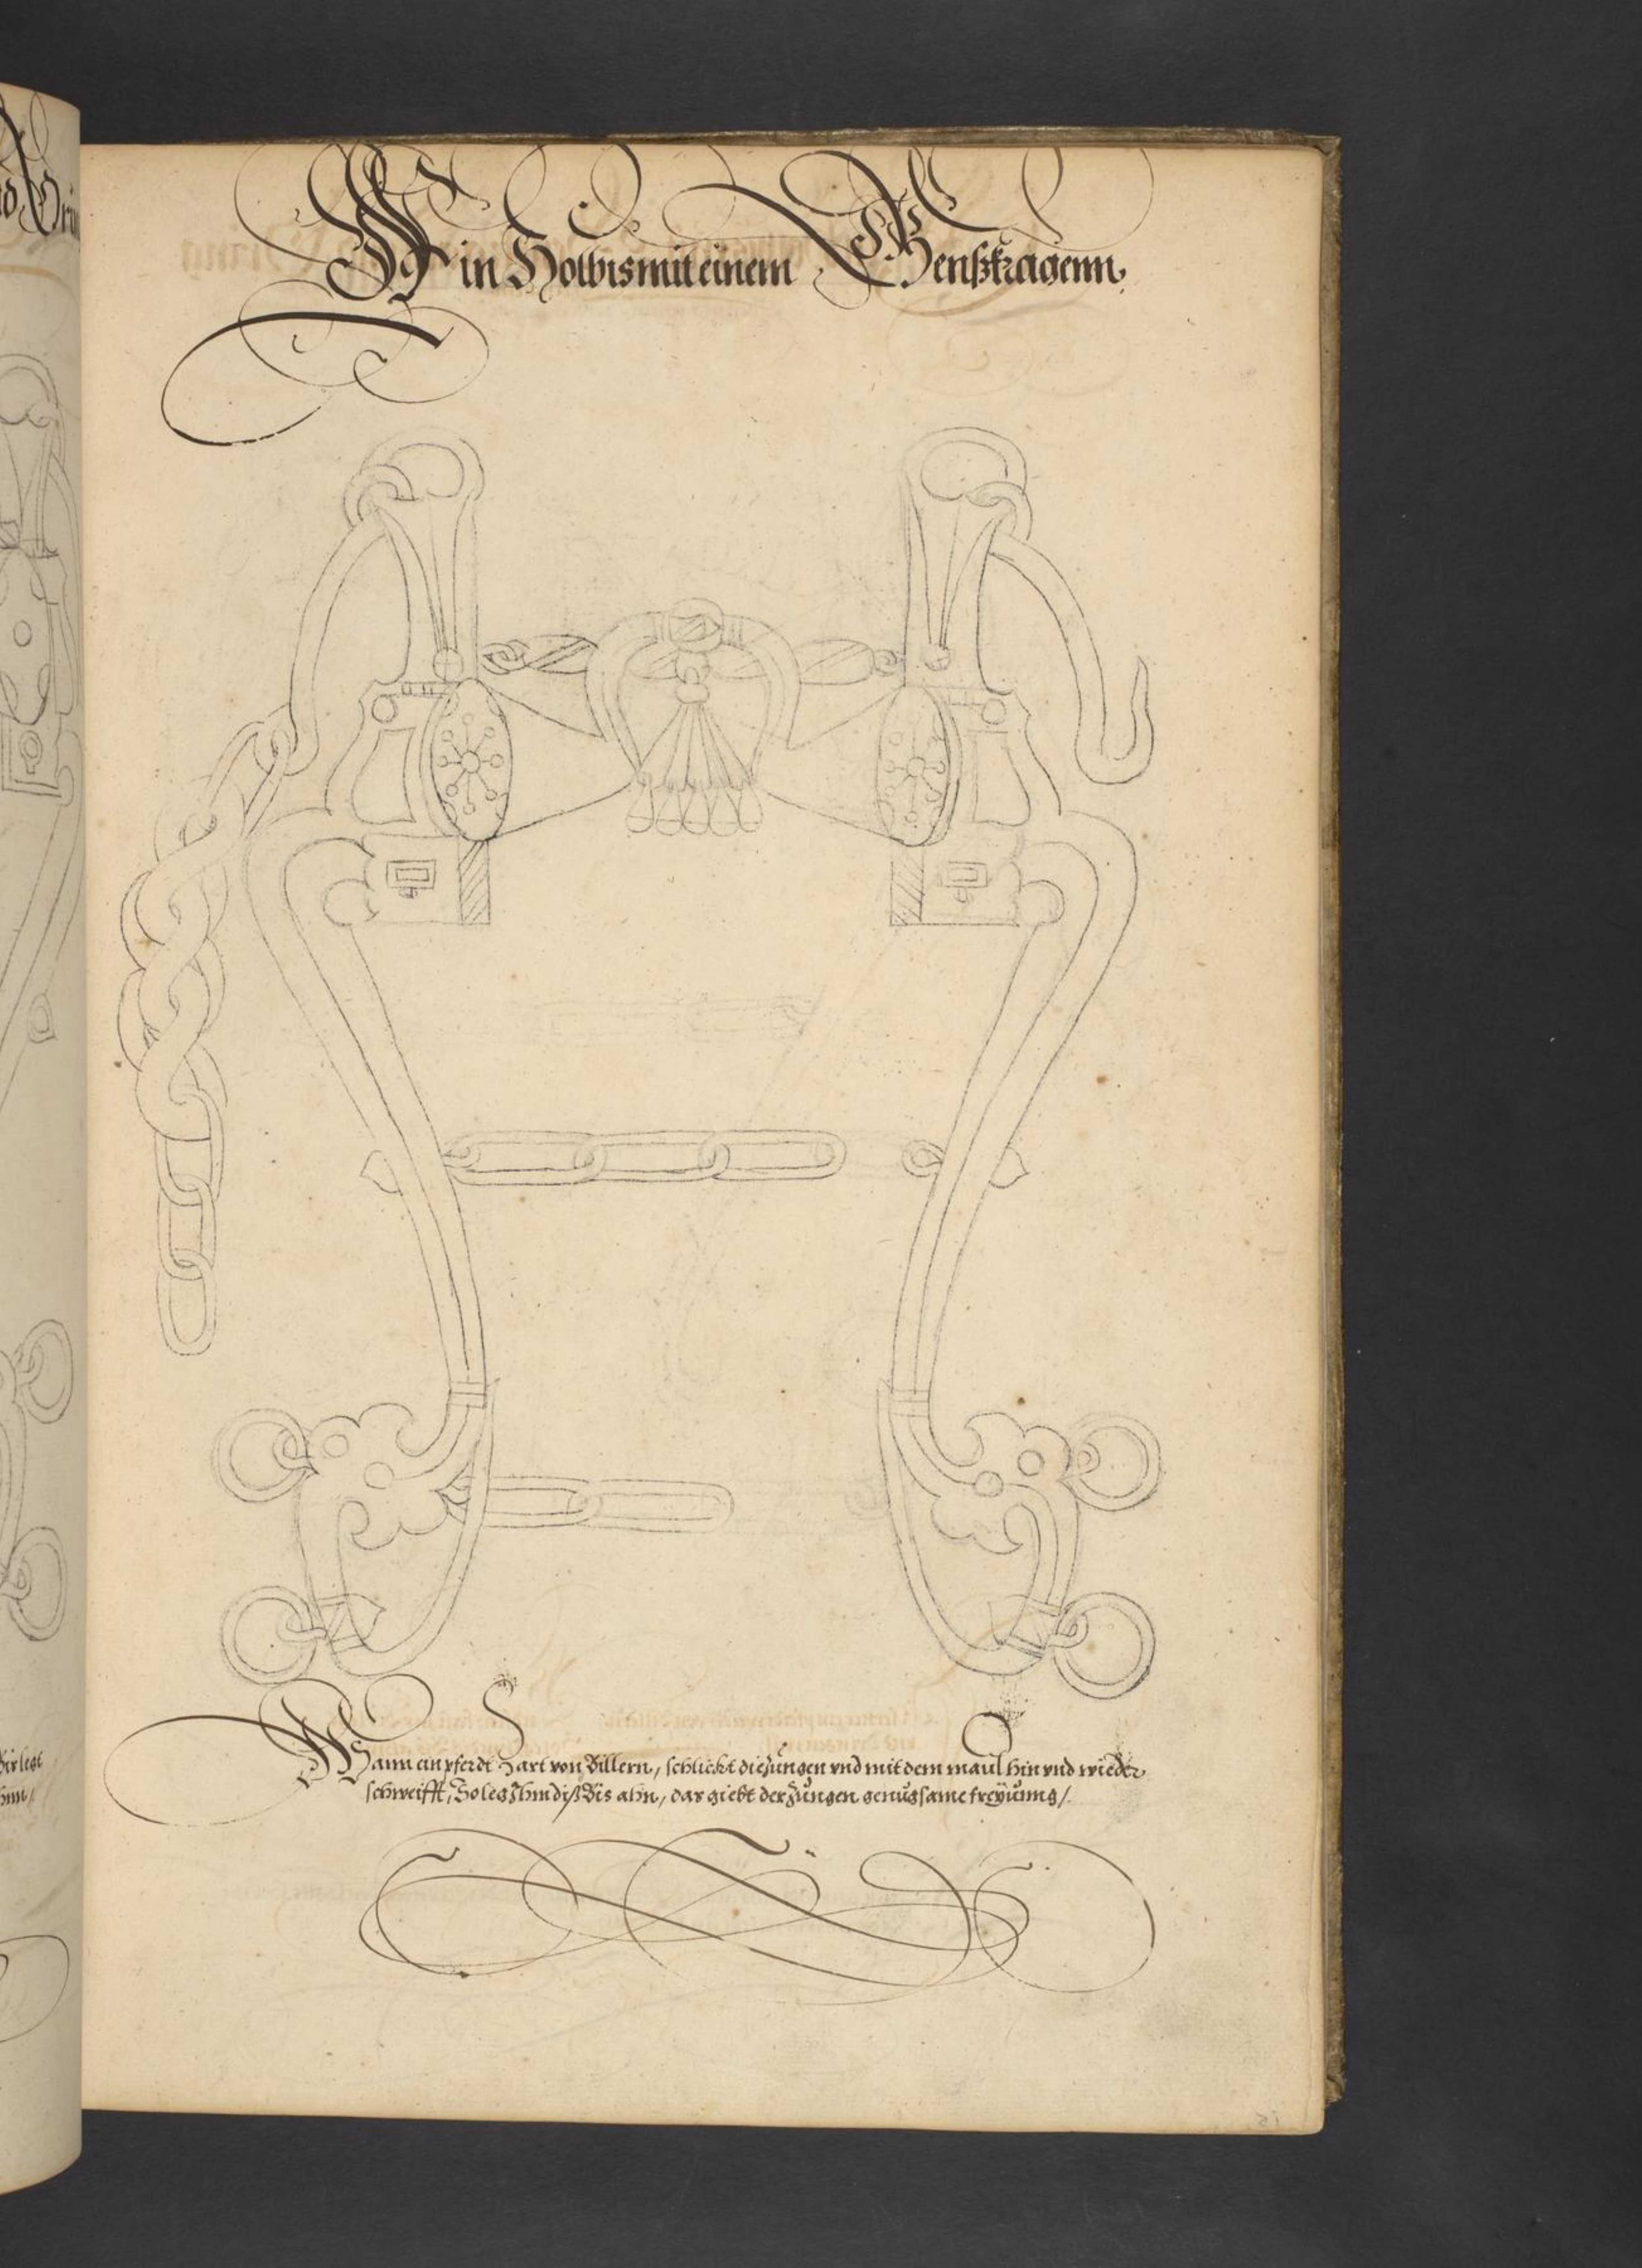 Ein Holbis mit einem Genßkragenn,
Wann ein pferdt Hart von Billern, schlickt die Zungen vnd mit dem maul hin vnd wieder
schweifft, So leg Ihm diß Bis ahn, das giebt der Zungen genugsame freyung /.
15